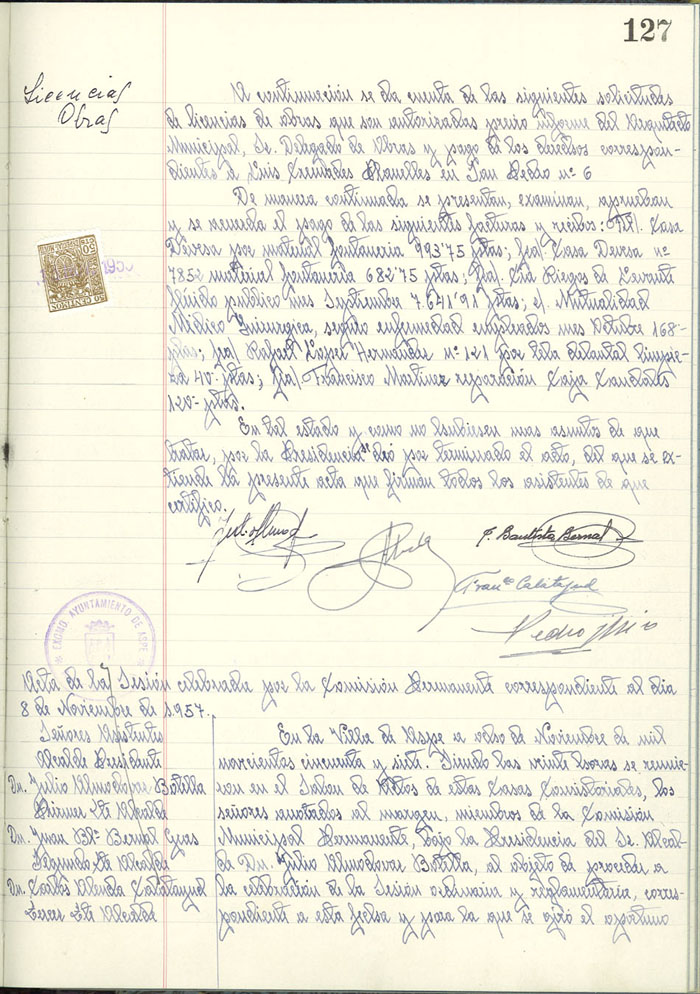 127
Licencias
Obras
A continuación se da cuenta de las siguientes solicitudes
de licencias de obras que son autorizadas previo informe del Arquitecto
Municipal, Sr. Delegado de Obras y pago de los derechos correspon-
dientes a Luis Cremades Planelles en San Pedro nº 6
De manera continuada se presentan, examinan, aprueban
y se acuerda el pago de las siguientes facturas y recibos: Casa
Devesa por material fontaneria 993'75 ptas; fra/. Casa Devesa nº
7852 material fontaneria 682'75 ptas; fra/. Cia Riegos de Levante
fluido publico mes Septiembre 7.641'91 ptas; e/. Mutualidad
Médico Quirurgica, seguro enfermedad empleados mes Octubre 168-
ptas; fra/. Rafael Lopez Hernandez nº 121 por tela delantal limpie-
za 40- ptas; fra/. Francisco Martinez reparación Caja Caudales
120- ptas.
En tal estado y como no hubiesen mas asuntos de que
tratar, por la Presidencia se dió por terminado el acto, del que se ex-
tiende la presente acta que firman todos los asistentes de que
certifico.
50 CENTIMOS
J. Bautista Bernal
Franco Calatayud
Pedro
EXCMO. AYUNTAMIENTO DE ASPE
Acta de la Sesión celebrada por la Comisión Permanente correspondiente al dia
8 de Noviembre de 1957.
Señores Asistentes
Alcalde Presidente
Dn. Julio Almodovar Botella
Primer Tte Alcalde
Dn. Juan Bta Bernal Gras
Segundo Tte Alcalde
Dn. Carlos Calatayud
Tercer Tte Alcalde
En la Villa de Aspe a ocho de Noviembre de mil
novecientos cincuenta y siete. Siendo las veinte horas se reunie-
ron en el Salon de Actos de estas Casas Consistoriales, los
señores anotados al margen, miembros de la Comisión
Municipal Permanente, bajo la Presidencia del Sr. Alcal-
de Dn. Julio Almodovar Botella, al objeto de proceder a
la celebración de la Sesión ordinaria y reglamentaria, corres-
pondiente a esta fecha y para la que se giró el oportuno